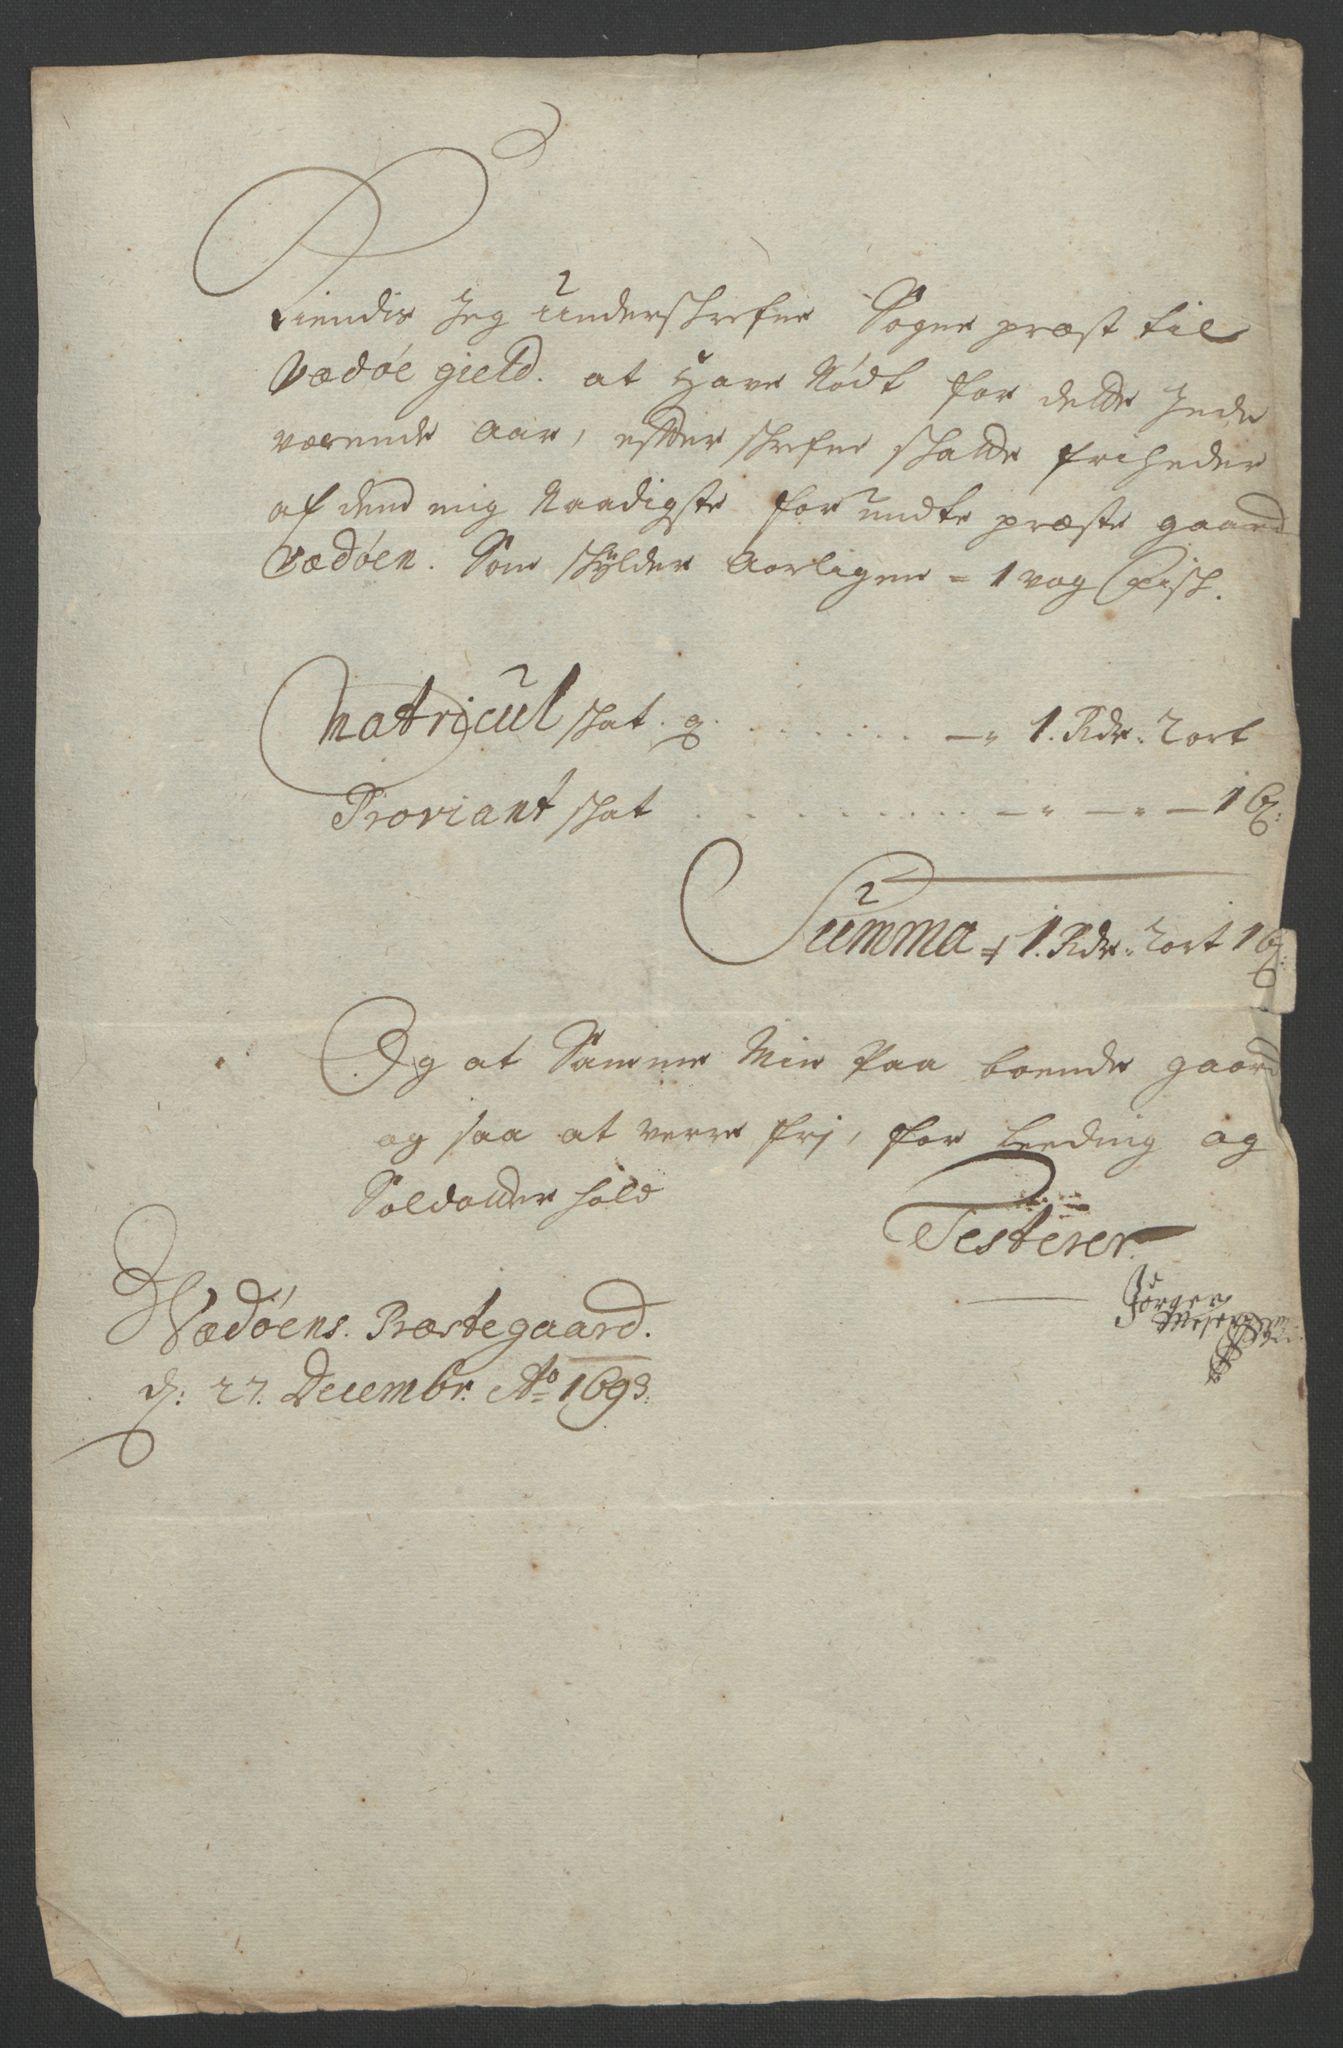 Kiendis Jeg Underschrefne Sogne præst til
Vædøe gield. at Have Nødt for dette Inde
værende Aar, effter schrefne schatte friheder
af dend mig Naadigste forundte præste gaard
Vædøen. Som schÿlder Aarligen = 1 vog Fisch.
Matricul schat. 1. Rdr. 2 ort
Proviant schat 16 ß:
Summa 1. Rdr. 2 ort 16 ß:
Og at Samme Min Paa boende gaard
og saa at verre frj, for Leeding og
Soldatter hold
Testerer
Jørgen
Wædøens. Præstegaard.
d: 27. Decembr. Ao 1693.